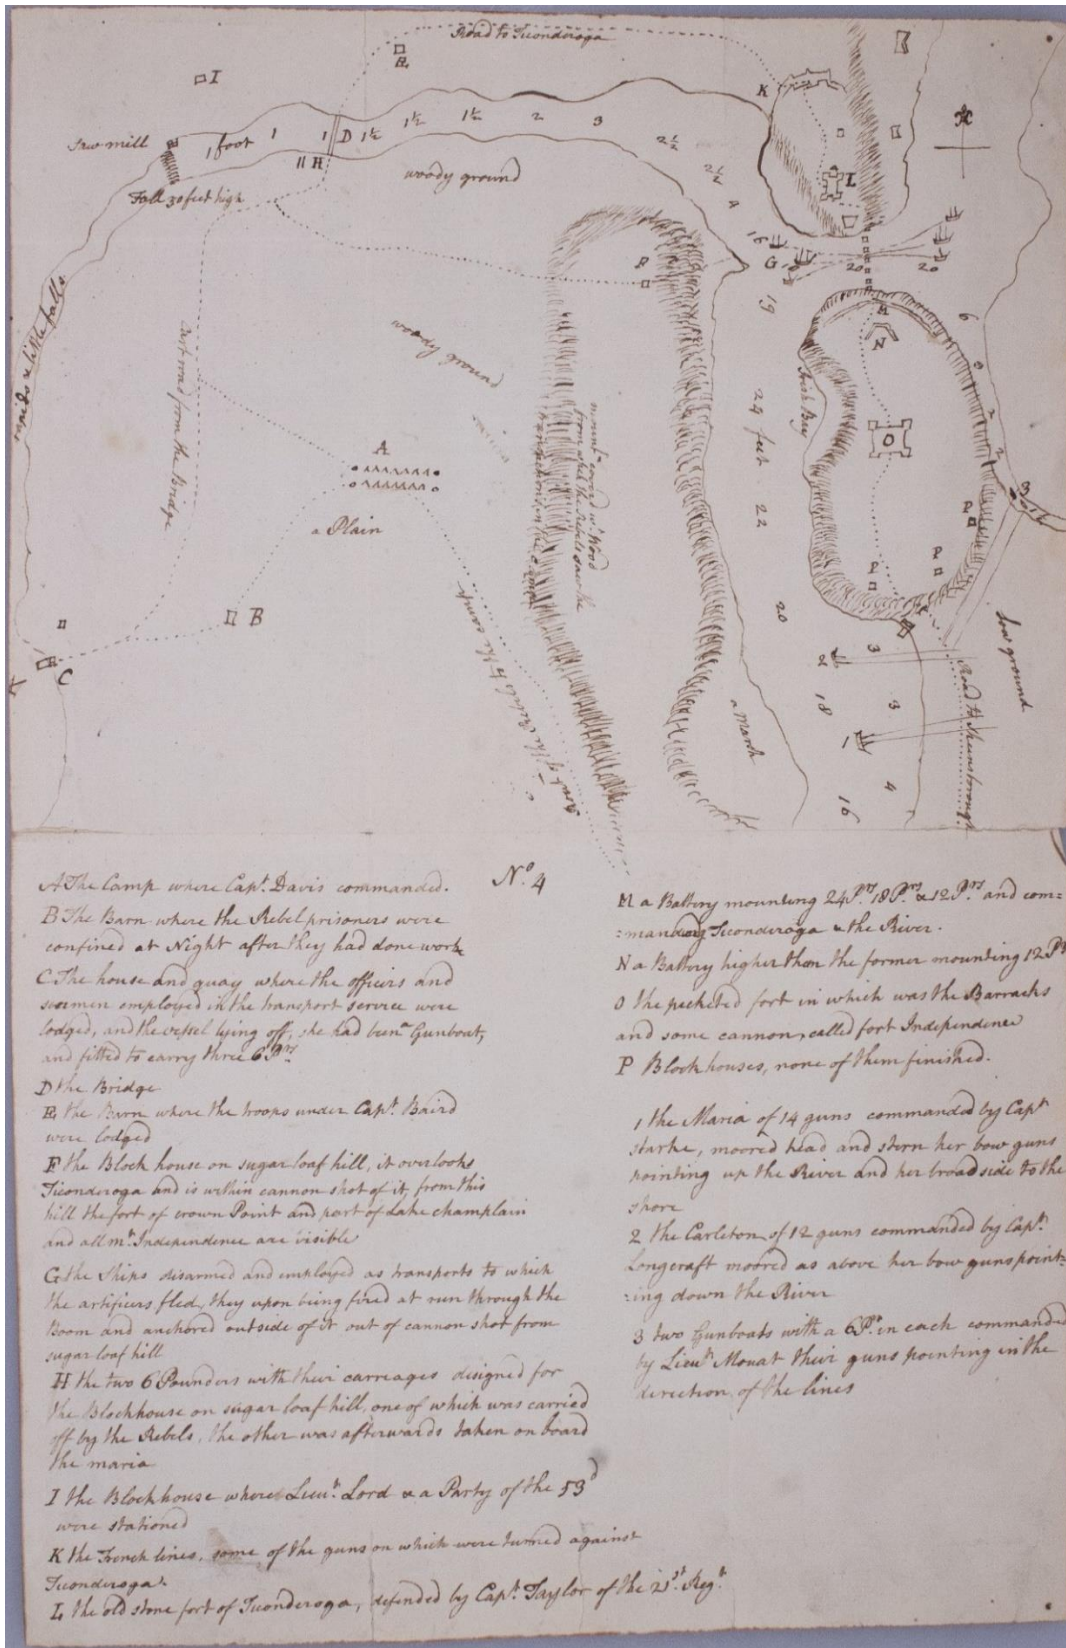 Road to Ticonderoga
E
I
K
Saw mill
1 foot 1 1 D 1½ 1½ 1½ 2 3 2½ 2½ 4
H
Fall 30 feet high
woody ground
L
16 G 18 20 20
F
19
M
N
6
rapids & little falls
Cart road from the Bridge
woody ground
24 feet
22
O
A
mountn. covered wt. Wood
from which the Rebels saw the
transactions in the Camp
3
a Plain
P
P
P
B
C
20
Low ground
2
3
18
3
1
4
16
a Marsh
Road to Skeensborough
Rout of the Rebels to the camp
No. 4
A The Camp where Capt. Davis commanded.
B The Barn where the Rebel prisoners were
confined at Night after they had done work
C The house and quay where the officers and
seamen employed in the transport service were
lodged, and the vessel lying off, she had been a Gunboat,
and fitted to carry three 6 Prs.
D the Bridge
E the Barn where the troops under Capt. Baird
were lodged
F the Block house on sugar loaf hill, it overlooks
Ticonderoga and is within cannon shot of it, from this
hill the fort of crown Point and part of Lake champlain
and all mt. Independence are visible
G the Ships disarmed and employed as transports to which
the artificers fled, they upon being fired at run through the
Boom and anchored outside of it out of cannon shot from
sugar loaf hill
H the two 6 Pounders with their carriages designed for
the Blockhouse on sugar loaf hill, one of which was carried
off by the Rebels, the other was afterwards taken on board
the maria
I the Blockhouse where Lieut. Lord & a Party of the 53d
were stationed
K the French lines, some of the guns on which were turned against
Ticonderoga.
L the old stone fort of Ticonderoga, defended by Capt. Taylor of the 21st. Regt.
M a Battery mounting 24 Prs. 18 Prs. & 12 Prs. and com=
=manding Ticonderoga & the River.
N a Battery higher than the former mounting 12 Prs
O the picketed fort in which was the Barracks
and some cannon, called fort Independence
P Block houses, none of them finished.
1 the Maria of 14 guns commanded by Capt.
Starke, moored head and stern her bow guns
pointing up the River and her broadside to the
shore
2 the Carleton of 12 guns commanded by Capt.
Longcraft moored as above her bow guns point=
=ing down the River
3 two Gunboats with a 6 Pr. in each commanded
by Lieut. Mouat their guns pointing in the
direction of the lines